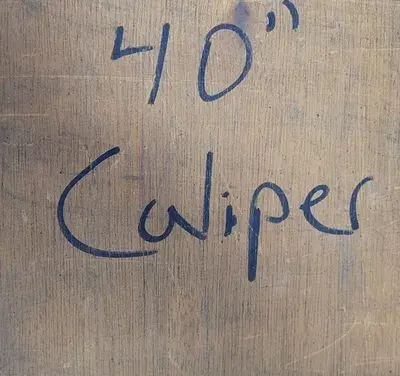 40"
Caliper